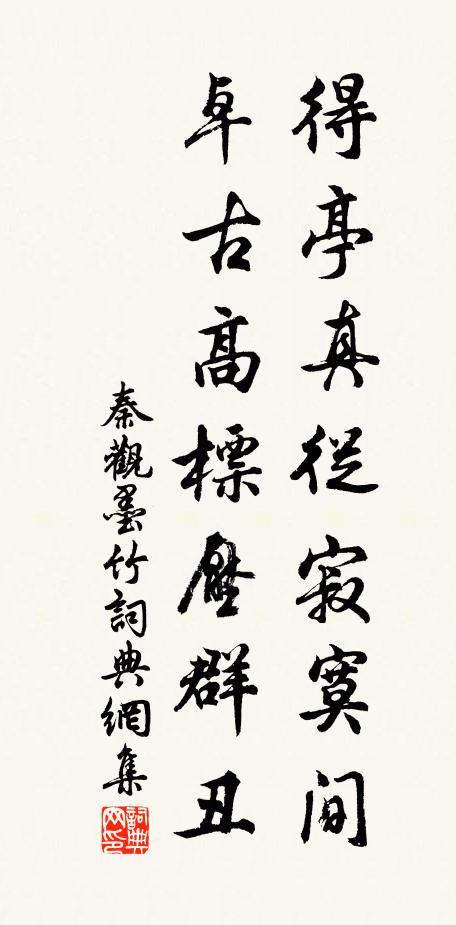 得亭真從寂寞間
卓古高標壓群丑
秦觀墨竹詞典網集
詞典网印